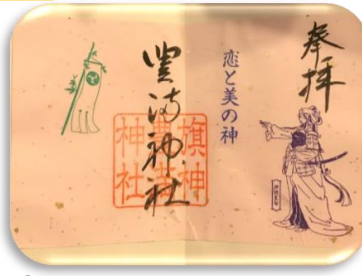 奉拝
恋と美の神
豊満神社
旗神
神社